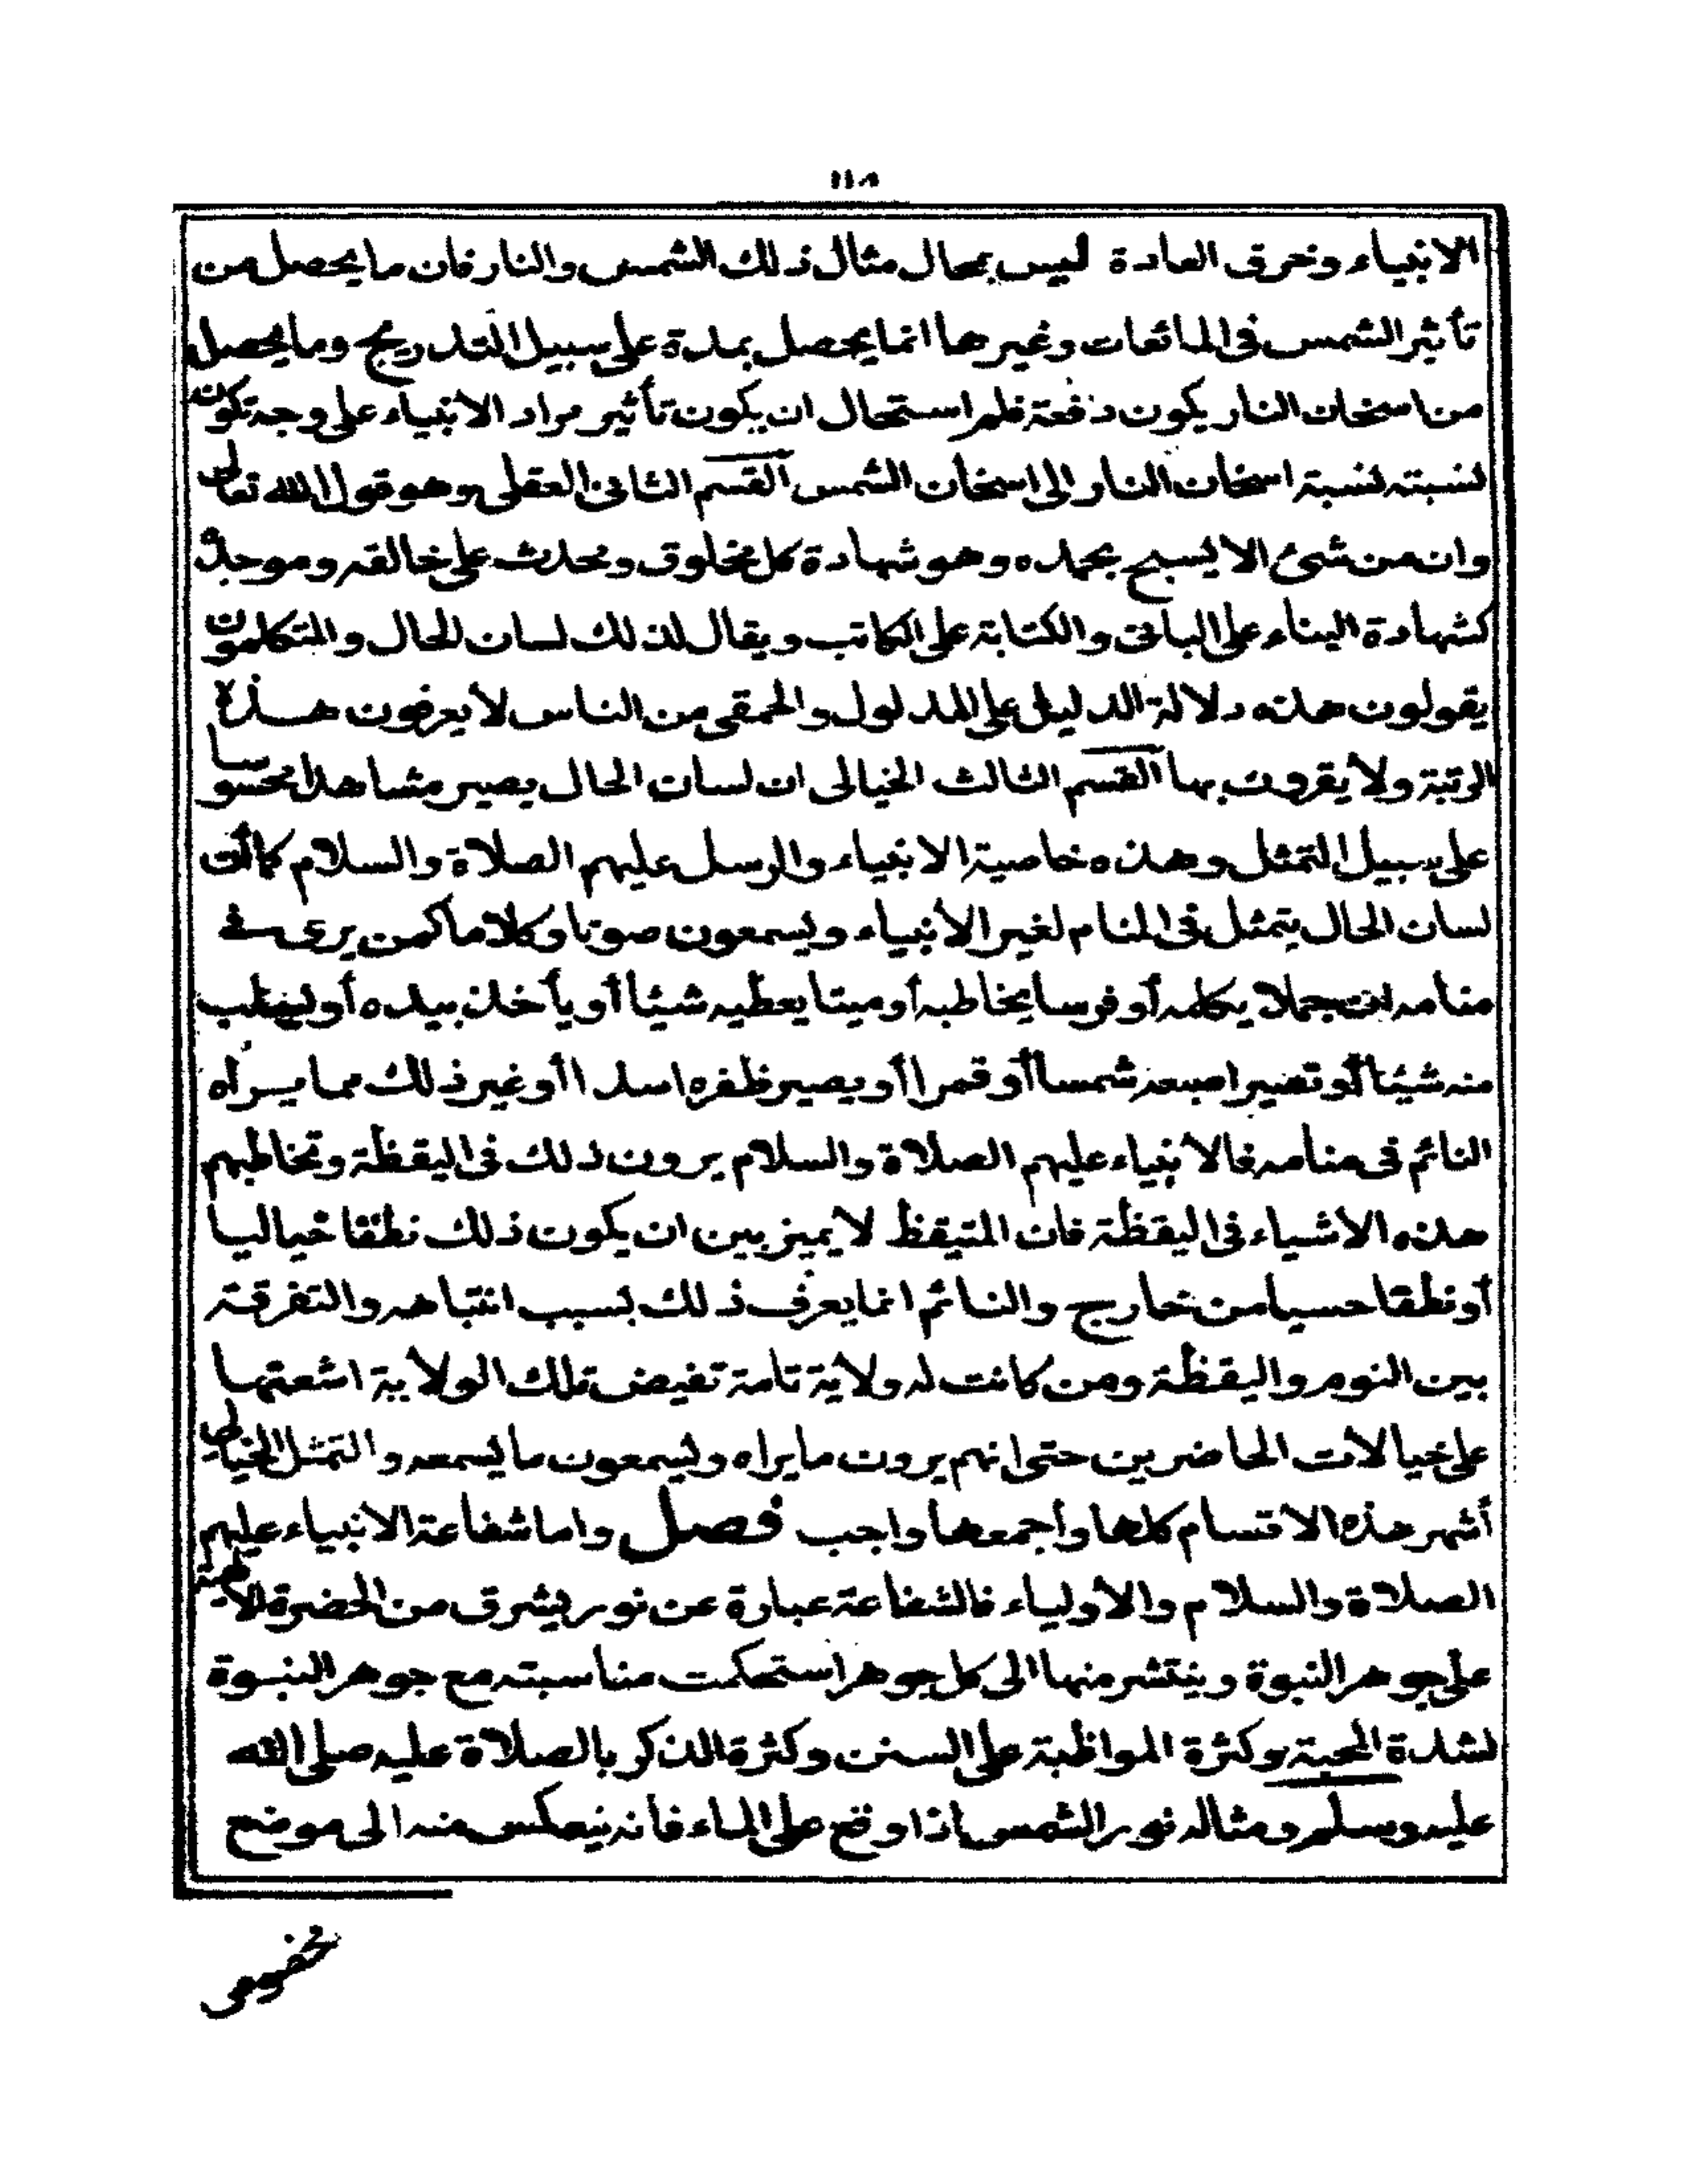 الانبياء وخرق العادة ليس بمحال مثال ذلك الشمس والنار فان ما يحصل من
تأثير الشمس فى المائعات وغيرها انما يحصل بمدة على سبيل التدريج وما يحصل
من اسخان النار يكون دفعة فلم استحال ان يكون تأثير مراد الانبياء على وجه تكون
نسبته لنسبة اسخان النار الى اسخان الشمس القسم الثانى العقلى وهو قول الله تعالى
وان من شئ الا يسبح بحمده وهو شهادة كل مخلوق ومحدث على خالقه وموجده
كشهادة البناء على البانى والكتابة على الكاتب ويقال لذلك لسان الحال والمتكلمون
يقولون هذه دلالة الدليل على المدلول والحمقى من الناس لا يعرفون هذه
الرتبة ولا يقرون بها القسم الثالث الخيالى ان لسان الحال يصير مشاهدا محسوسا
على سبيل التمثل وهذه خاصية الانبياء والرسل عليهم الصلاة والسلام كما أن
لسان الحال يتمثل فى المنام لغير الأنبياء ويسمعون صوتا وكلاما كمن يرى فى
منامه ان جملا يكلمه أو فرسا يخاطبه أو ميتا يعطيه شيئا أو يأخذ بيده أو يسلب
منه شيئا أو تصير اصبعه شمسا أو قمرا أو يصير ظفره اسدا أو غير ذلك مما يراه
النائم فى منامه فالأنبياء عليهم الصلاة والسلام يرون ذلك فى اليقظة وتخاطبهم
هذه الاشياء فى اليقظة فان المتيقظ لا يميز بين ان يكون ذلك نطقا خياليا
أو نطقا حسيا من خارج والنائم انما يعرف ذلك بسبب انتباهه والتفرقة
بين النوم واليقظة ومن كانت له ولاية تامة تفيض تلك الولاية اشعتها
على خيالات الحاضرين حتى انهم يرون ما يراه ويسمعون ما يسمعه والتمثل الخيالى
أشهر هذه الاقسام كلها وأجمعها واجب فصل واما شفاعة الانبياء عليهم
الصلاة والسلام والأولياء فالشفاعة عبارة عن نور يشرق من الحضرة الالهية
على جوهر النبوة وينتشر منها الى كل جوهر استحكمت مناسبته مع جوهر النبوة
لشدة المحبة وكثرة المواظبة على السنن وكثرة الذكر بالصلاة عليه صلى الله
عليه وسلم ومثاله نور الشمس اذا وقع على الماء فانه ينعكس منه الى موضع